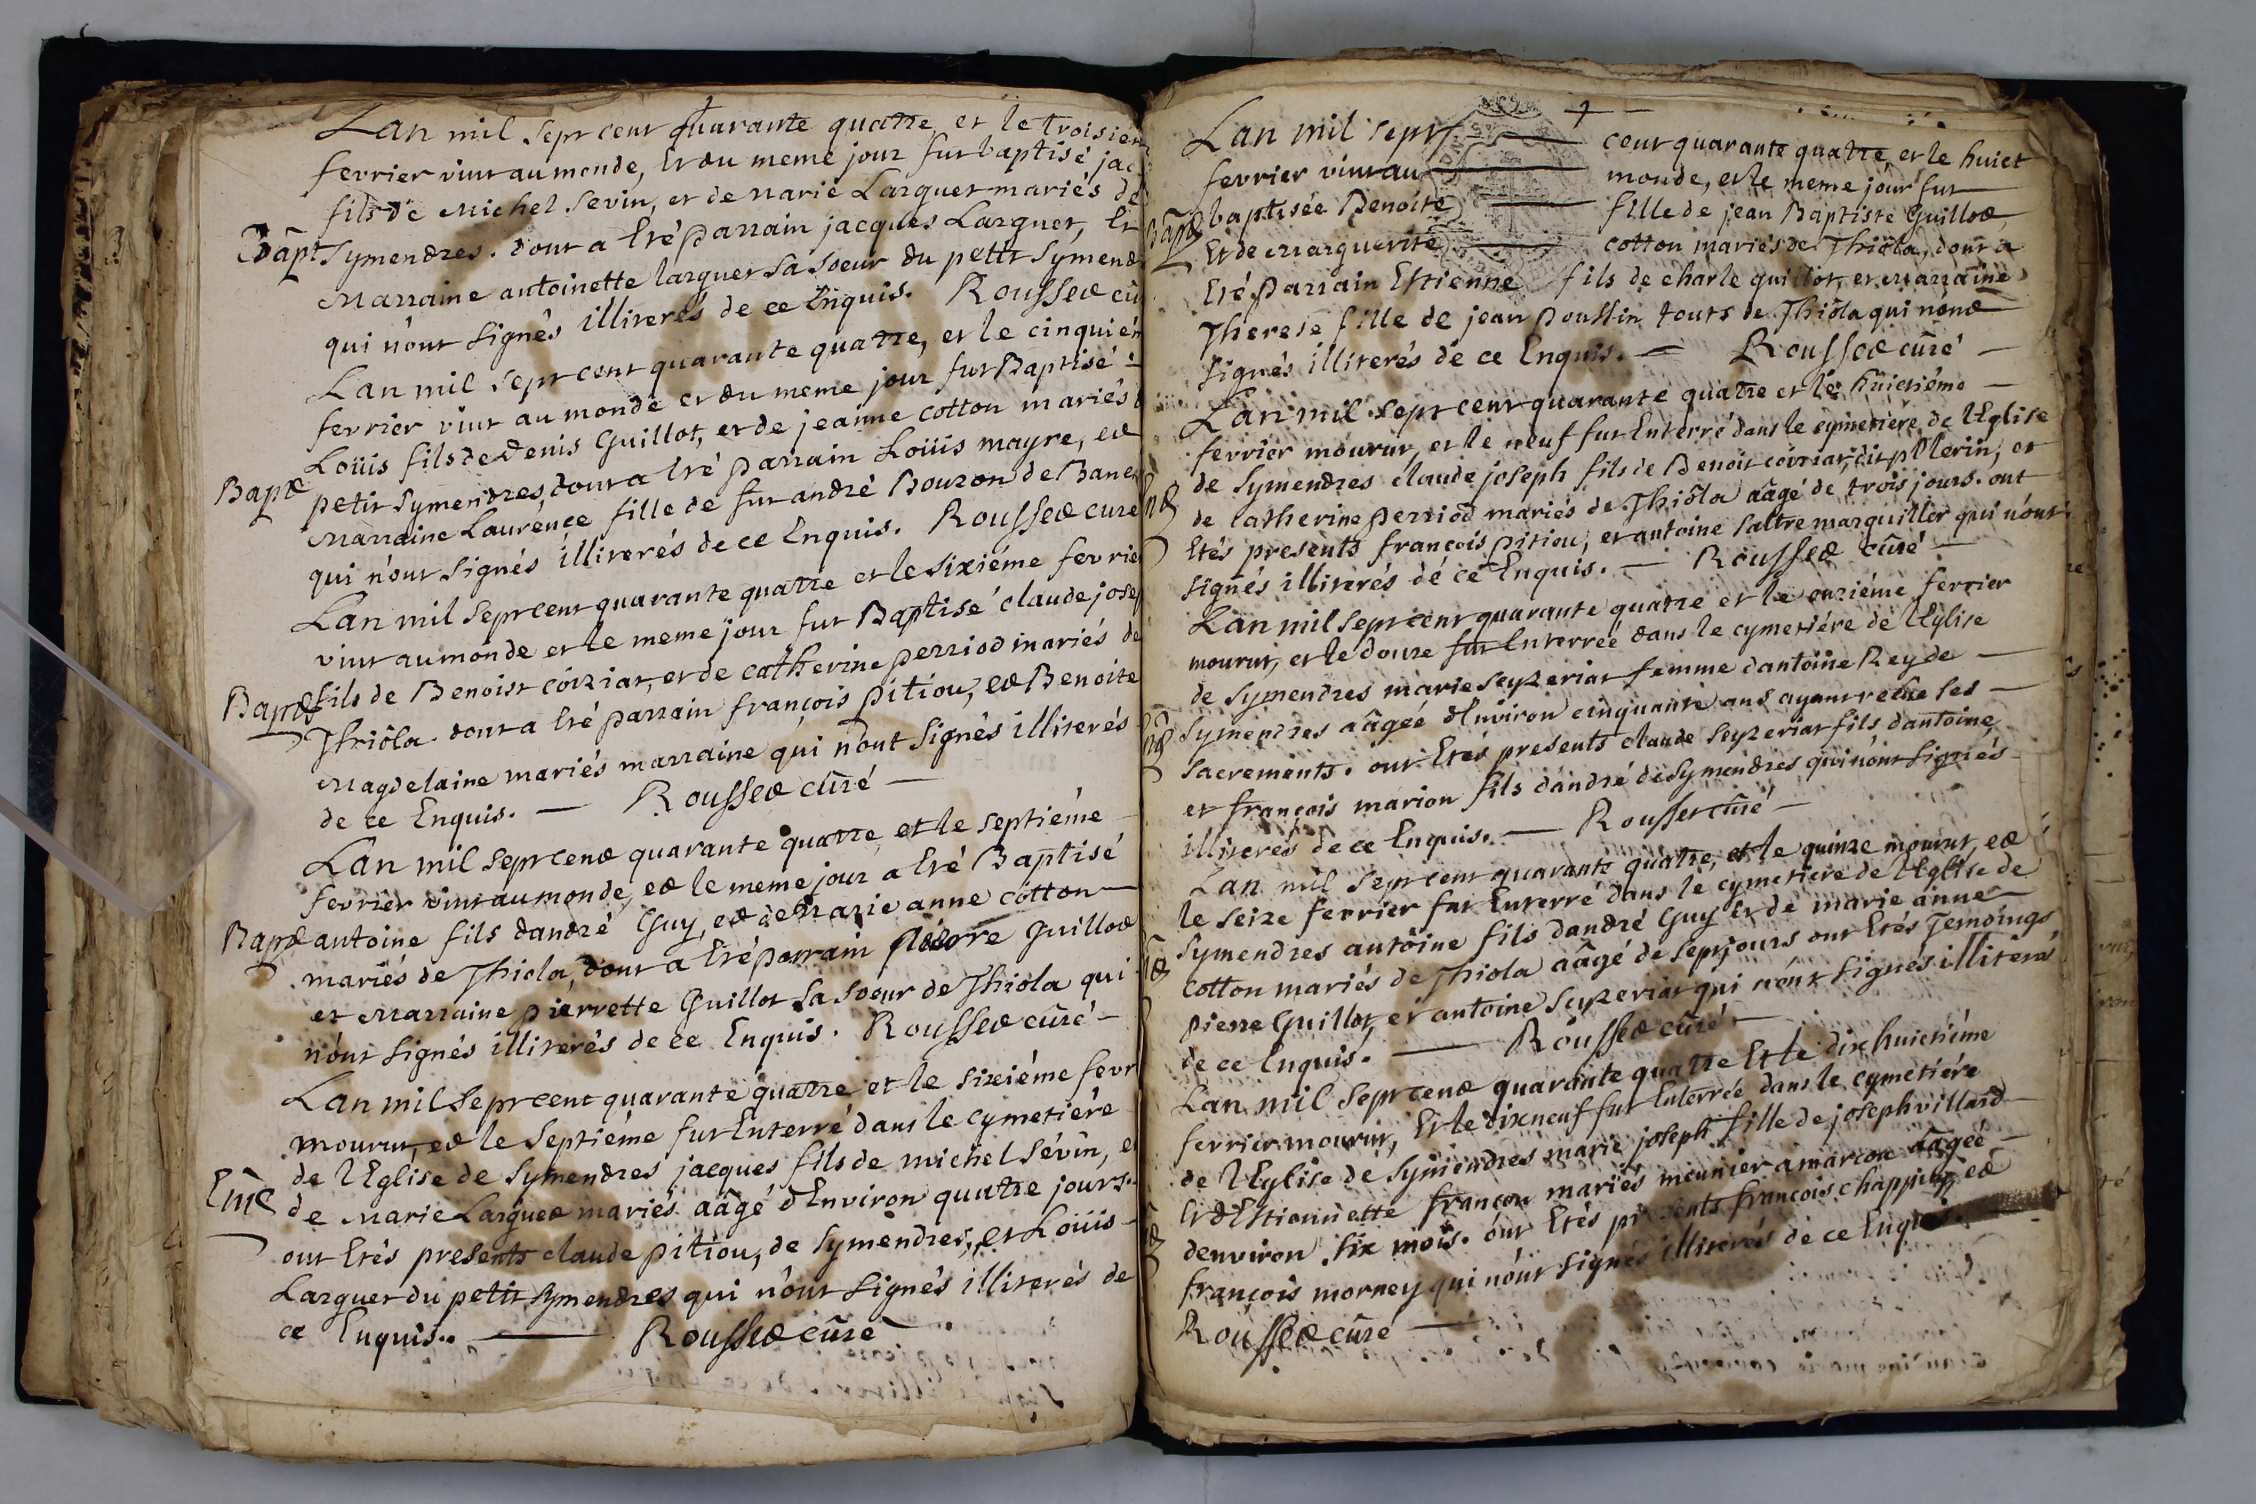 Lan mil sept cent quarante quatre et le troisiem
fevrier vint au monde, et du meme jour fut baptisé jac
fils de Michel Sevin, et de Marie Larguet mariés de
Bapt Symendres. dont a Eté parrain jacques Larguet, Et
Marraine antoinette larguet sa soeur du petit Symend
qui n'ont signés illiterés de ce Enquis. Rousset cu
Lan mil sept cent quarante quatre, et le cinquiém
fevrier vint au monde et du meme jour fut Baptisé
Loüis fils de Denis Guillot, et de jeanne cotton mariés
Bapt petit Symendres, dont a Eté parrain Loüis mayre, et
Marraine Laurence fille de fut andré Bouzon de Bane
qui n'ont signés illiterés de ce Enquis. Rousset cure
Lan mil sept cent quarante quatre et le sixiéme fevrie
vint au monde et le meme jour fut Baptisé claude jose
Bapt fils de Benoist coiziat, et de catherine perriod mariés de
Thiôla. dont a Eté parrain françois pitiou, et Benoite
Magdelaine mariés marraine qui n'ont signés illiterés
de ce Enquis. — Rousset curé —
Lan mil sept cent quarante quatre, et le septiéme
fevrier vint au monde, et le meme jour a Eté Baptisé
Bapt antoine fils dandré Guy, et de Marie anne cotton —
mariés de Thiola, dont a Eté parrain Guillot
et Marraine pierrette Guillot sa soeur de Thiola qui
n'ont signés illiterés de ce Enquis. Rousset curé —
Lan mil sept cent quarante quatre et le sixiéme fevr
mourut, et le septiéme fut Enterré dans le cymetiére
de lEglise de Symendres jacques fils de michel sévin, et
Ente de Marie Larguet mariés aâgé dEnviron quatre jours.
ont Etés presents claude pitiou, de Symendres, et Loüis —
Larguet du petit Symendres qui n'ont signés illiterés de
ce Enquis.. — Rousset curé
Lan mil sept — cent quarante quatre, et le huict
fevrier vint au — monde, et le meme jour fut
Bapt baptisée Benoite — fille de jean Baptiste Guillot
Et de Marguerite — cotton mariés de Thiôla, dont a
Eté parrain Estienne fils de charle guillot, et Marraine
Therese fille de jean poussin touts de Thiôla qui nont
signés illiterés de ce Enquis. — Rousset curé —
Lan mil sept cent quarante quatre et le huictiéme —
fevrier mourut, et le neuf fut Enterré dans le cymetiere de lEglise
de Symendres claude joseph fils de Benoit coiziat, dit pElerin, et
de catherine perriod mariés de Thiôla aâgé de trois jours. ont
Etés presents françois pitiou, et antoine saltre marguiller qui n'ont
signés illiterés de ce Enquis. — Rousset curé —
Lan mil sept cent quarante quatre et le onziéme fevrier
mourut, et le douze fut Enterreé dans le cymetiére de lEglise
de Symendres marie seyzeriat femme dantoine Rey de —
Symendres aâgéé dEnviron cinquante ans ayant recüe ses —
sacrements. ont Etés presents claude seyzeriat fils dantoine,
et françois marion fils dandré de Symendres qui n'ont signés
illiterés de ce Enquis. — Rousset curé —
Lan mil sept cent quarante quatre, et le quinze mourut, et
le seize fevrier fut Enterré dans le cymetiere de lEglise de
Symendres antoine fils dandré Guy Et de marie anne
cotton mariés de Thiola aâgé de sept jours ont Etés Temoings
pierre Guillot, et antoine seyzeriat qui n'ont signés illiterés
de ce Enquis. — Rousset curé —
Lan mil sept cent quarante quatre Et le dix huictiéme
fevrier mourut, Et le dixneuf fut Enterrée dans le cymetiére
de lEglise de Symendres marie joseph fille de joseph villard
Et dEstiennette françon mariés meunier a marcou aâgeé —
denviron six mois. ont Etés presents françois chappuy, et
françois morney qui n'ont signés illiterés de ce Enquis.
Rousset curé —